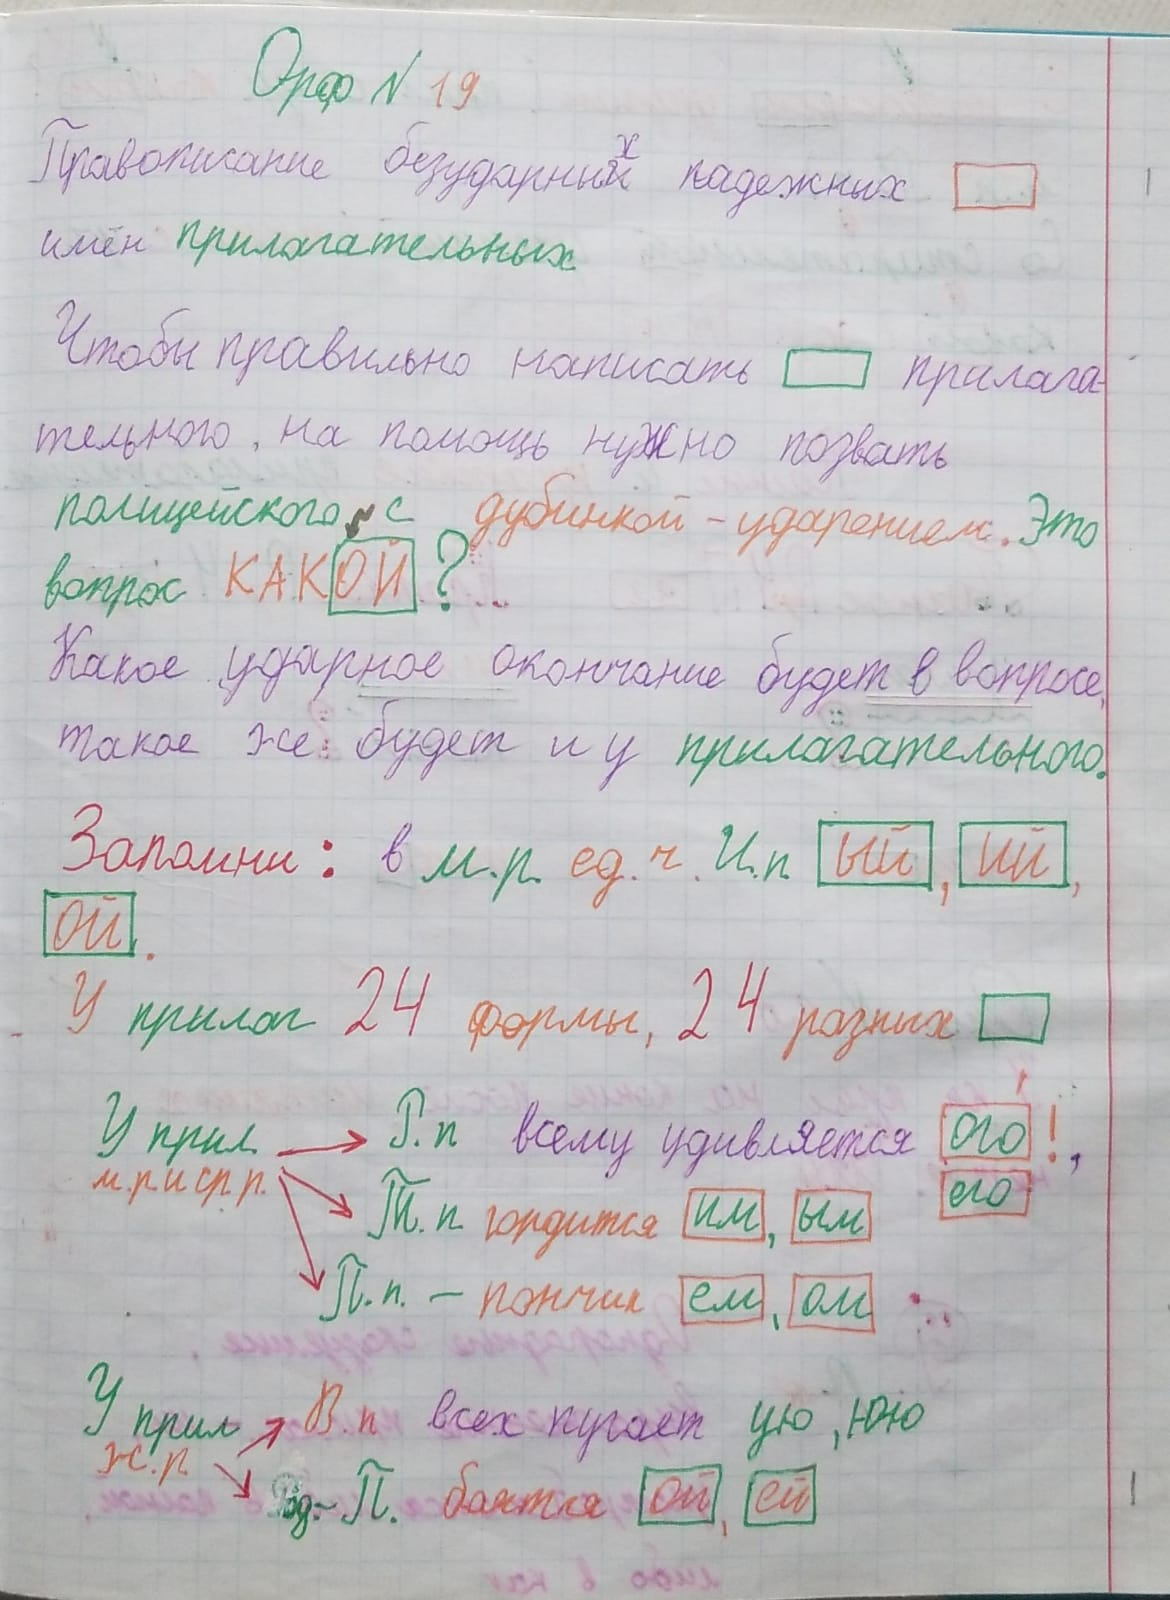 Орф № 19
Правописание безударных падежных
имён прилагательных
Чтобы правильно написать прилага-
тельного, на помощь нужно позвать
полицейского с дубинкой - ударением. Это
вопрос КАКОЙ ?
Какое ударное окончание будет в вопросе,
такое же будет и у прилагательного.
Запомни: в м.р. ед.ч. И.п ый, ий,
ой.
У прилаг 24 формы, 24 разных
У прил → Р.п всему удивляется ого!,
м.р и ср.р. его
Т.п. гордится им, ым
П.п. – пончик ем, ом
У прил В.п всех пугает ую, юю
ж.р.
П. боятся ой, ей